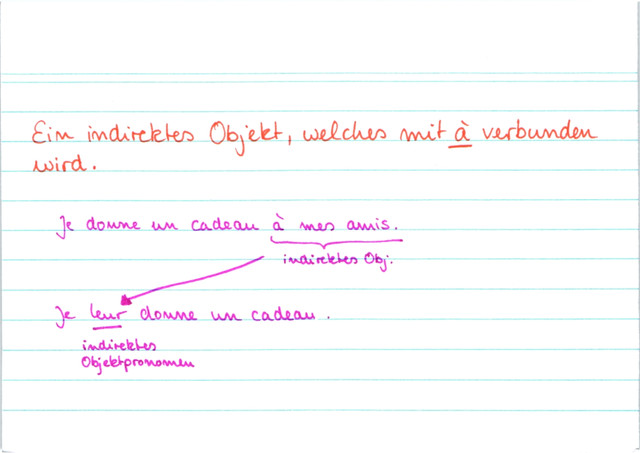 Ein indirektes Objekt, welches mit à verbunden
wird.
Je donne un cadeau à mes amis.
indirektes Obj.
Je leur donne un cadeau.
indirektes
Objektpronomen